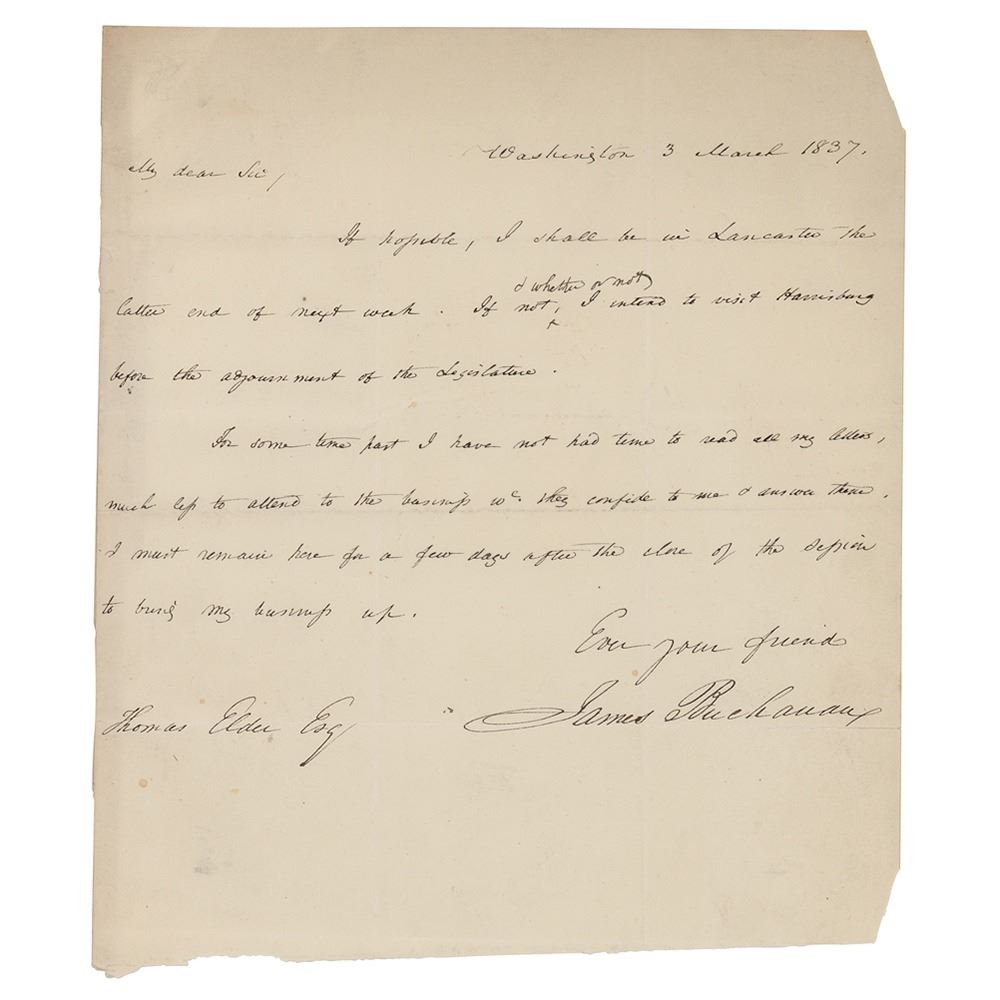 Washington 3 March 1837.
My dear Sir,
If possible, I shall be in Lancaster the
& whether or not
latter end of next week. If not, I intend to visit Harrisburg
before the adjournment of the Legislature.
For some time past I have not had time to read all my letters,
much less to attend to the business wc. they confide to me & answer them.
I must remain here for a few days after the close of the session
to bring my business up.
Ever your friend
James Buchanan
Thomas Elder Esq